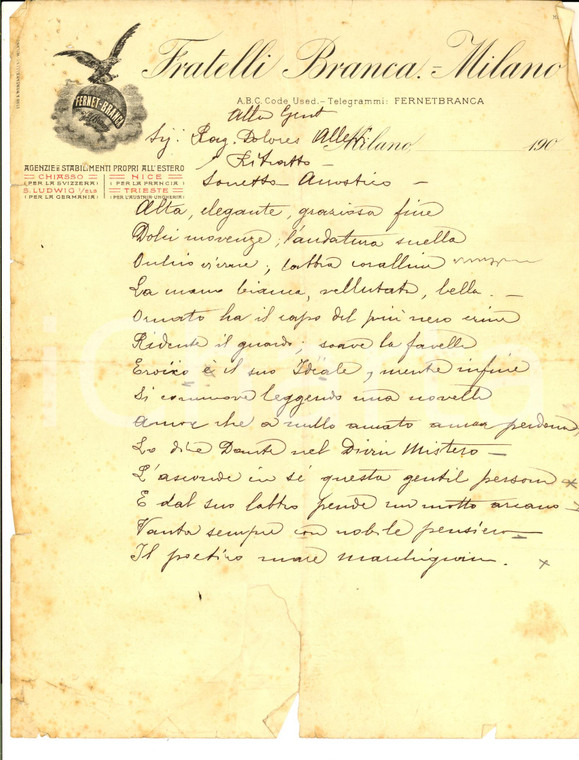 Fratelli Branca.=Milano
FERNET-BRANCA
A.B.C. Code Used.– Telegrammi: FERNETBRANCA
Alla Gent
Sig. Rag. Dolores Allevi
Milano 190
Ritratto –
Sonetto Acrostico –
AGENZIE E STABILIMENTI PROPRI ALL'ESTERO
CHIASSO
(PER LA SVIZZERA)
NICE
(PER LA FRANCIA)
S. LUDWIG I/ELS
(PER LA GERMANIA)
TRIESTE
(PER L'AUSTRIA UNGHERIA)
Alta, elegante, graziosa fine
Dolci movenze; l'andatura snella
Occhio vivace; labbra coralline
La mano bianca, vellutata, bella. –
Ornato ha il capo del più nero crine
Ridente il guardo; soave la favella
Eroico è il suo Ideale, mente infine
Si commuove leggendo una novella
Amor che a nullo amato amar perdona,
Lo dice Dante nel Divin Mistero –
L'asconde in sé questa gentil persona
E dal suo labbro pende un motto arcano –
Vanta sempre con nobile pensiero –
Il poetico mare marchigiano.